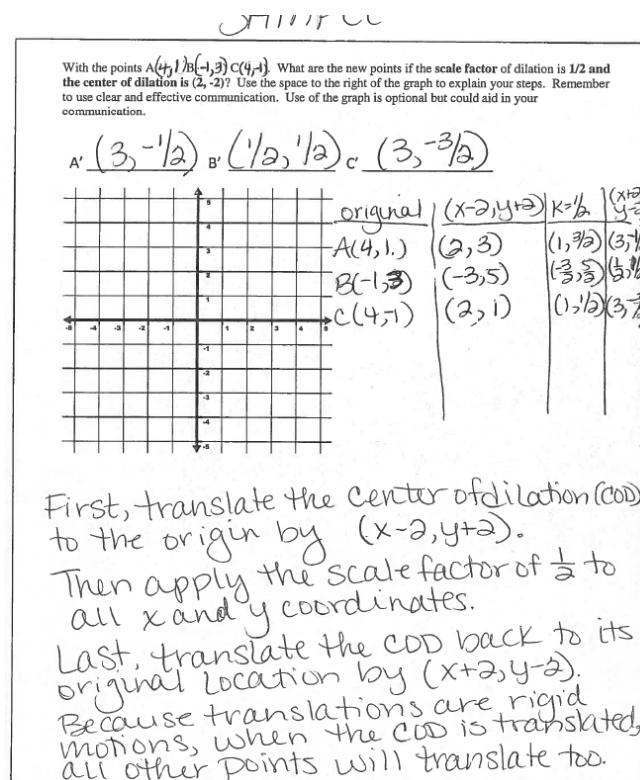 SAMPLE
With the points A(4,1) B(-1,3) C(4,-1). What are the new points if the scale factor of dilation is 1/2 and
the center of dilation is (2, -2)? Use the space to the right of the graph to explain your steps. Remember
to use clear and effective communication. Use of the graph is optional but could aid in your
communication.
A' (3, -1/2) B' (1/2, 1/2) C' (3, -3/2)
original (x-2, y+2) K=1/2 (x+2
A(4, 1.) (2, 3) (1, 3/2) (3, -1/
B(-1, 3) (-3, 5) (-3/2, 5/2) (1/2, 1/
C(4, -1) (2, 1) (1, 1/2) (3, -3/
5
4
3
2
1
-5 -4 -3 -2 -1 1 2 3 4 5
-1
-2
-3
-4
-5
First, translate the center of dilation (COD)
to the origin by (x-2, y+2).
Then apply the scale factor of 1/2 to
all x and y coordinates.
Last, translate the COD back to its
original location by (x+2, y-2).
Because translations are rigid
motions, when the COD is translated,
all other points will translate too.